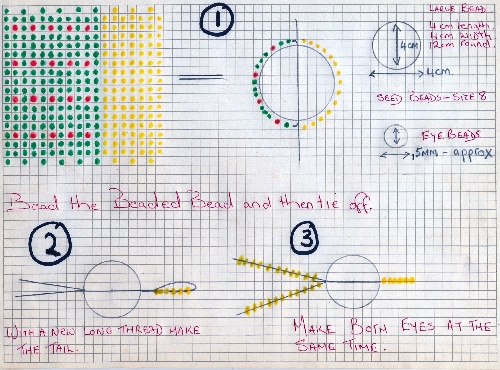 1
LARGE BEAD
4cm length
4cm width
12cm round.
4cm
4cm.
SEED BEADS - SIZE 8
EYE BEADS
.5MM - approx
Bead the Beaded Bead and then tie off.
2
3
WITH A NEW LONG THREAD MAKE
THE TAIL.
MAKE BOTH EYES AT THE
SAME TIME.